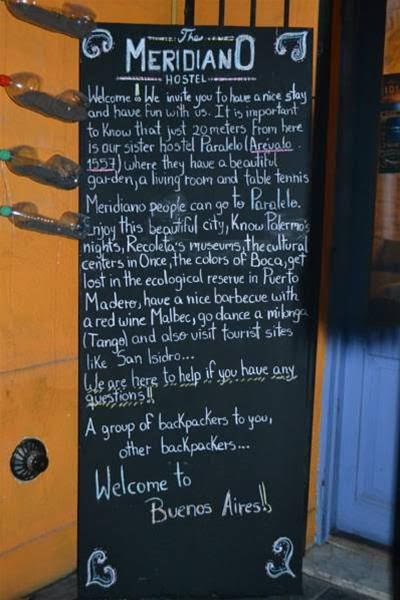 The
MERIDIANO
HOSTEL
Welcome!! We invite you to have a nice stay
and have fun with us. It is important
to Know that just 20 meters from here
is our sister hostel Paralelo (Arevalo
1557) where they have a beautiful
garden, a living room and table tennis
Meridiano people can go to Paralelo.
Enjoy this beautiful city, Know Palermo's
nights, Recoleta's museums, the cultural
centers in Once, the colors of Boca, get
lost in the ecological reserve in Puerto
Madero, have a nice barbecue with
a red wine Malbec, go dance a milonga
(Tango) and also visit tourist sites
like San Isidro...
We are here to help if you have any
questions!!
A group of backpackers to you,
other backpackers...
Welcome to
Buenos Aires!!